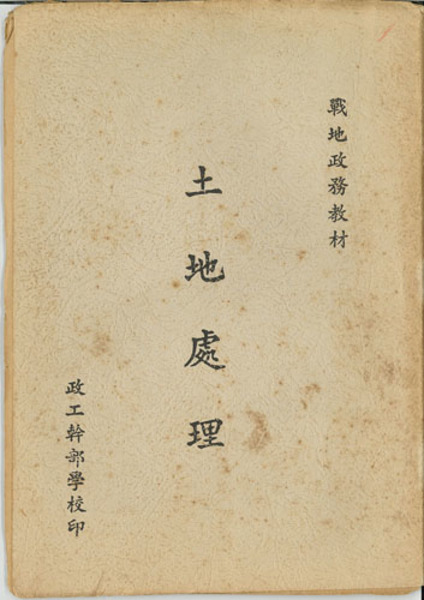 戰地政務教材
土地處理
政工幹部學校印